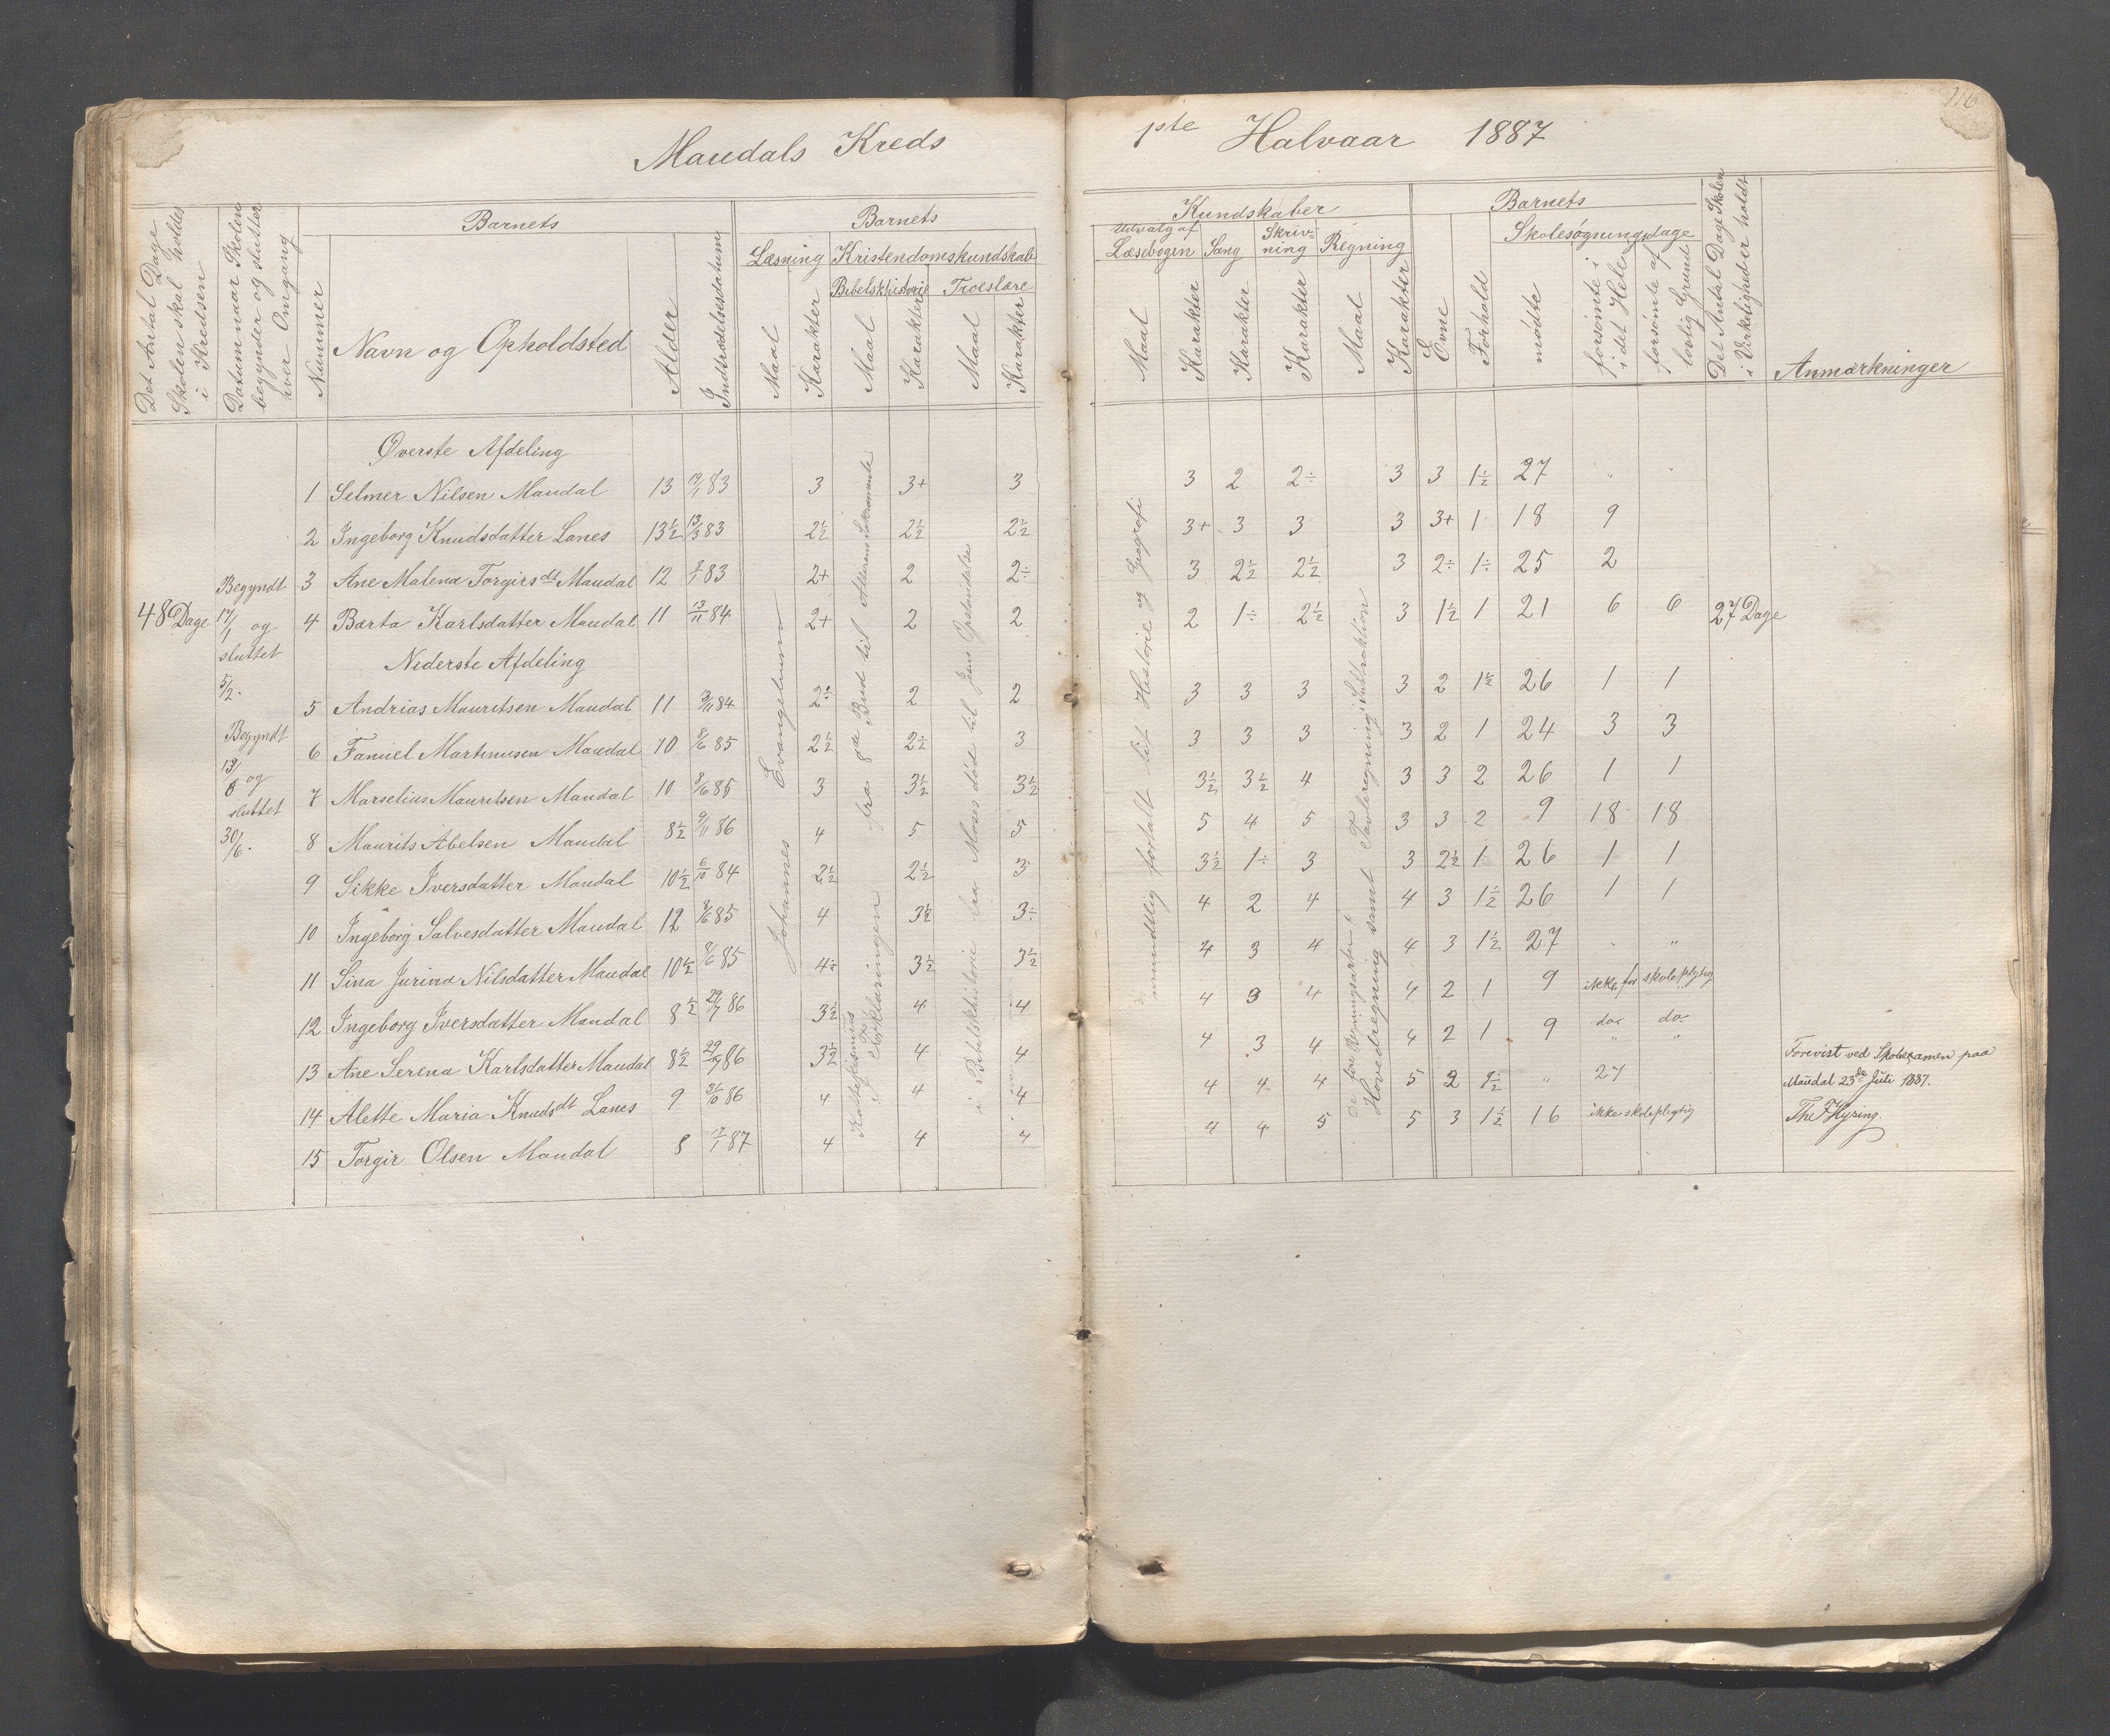 Maudals Kreds
1ste Halvaar 1887
116
Det Antal Dage Skolen skal holdes i Kredsen
Datum naar Skolen begynder og slutter hver Omgang
Nummer
Barnets
Navn og Opholdsted
Alder
Indtrædelsesdatum
Barnets
Læsning
Kristendomskundskab
Bibelskhistorie
Troeslære
Maal
Karakter
Maal
Karakter
Maal
Karakter
Kundskaber
Udvalg af Læsebogen
Sang
Skriv-ning
Regning
Maal
Karakter
Karakter
Karakter
Maal
Karakter
Barnets
Evne
Forhold
Skolesøgningsdage
mødte
forsømte i det Hele
forsømte af lovlig Grund
Det Antal Dage Skolen i Virkelighed er holdt
Anmærkninger
Øverste Afdeling
1 Selmer Nilsen Maudal 13 83 3 3+ 3 3 2 2÷ 3 3 1½ 27 " "
2 Ingeborg Knudsdatter Lanes 13½ 13/3 83 2½ 2½ 2½ 3+ 3 3 3 3+ 1 18 9
3 Ane Malena Torgirsdt Maudal 12 83 2+ 2 2÷ 3 2½ 2½ 3 2÷ 1÷ 25 2
4 Barta Karlsdatter Maudal 11 13/11 84 2+ 2 2 2 1÷ 2½ 3 1½ 1 21 6 6 27 Dage
48 Dage
Begyndt 17/1 og sluttet 5/2.
Begyndt 13/6 og sluttet 30/6.
Nederste Afdeling
5 Andrias Mauritsen Maudal 11 3/11 84 2÷ 2 2 3 3 3 3 2 1½ 26 1 1
6 Fanuel Martinusen Maudal 10 8/6 85 2½ 2½ 3 3 3 3 3 2 1 24 3 3
7 Marselius Mauritsen Maudal 10 8/6 85 3 3½ 3½ 3½ 3½ 4 3 3 2 26 1 1
8 Maurits Abelsen Maudal 8½ 9/11 86 4 5 5 5 4 5 3 3 2 9 18 18
9 Sikke Iversdatter Maudal 10½ 6/10 84 2½ 2½ 3 3½ 1÷ 3 3 2½ 1 26 1 1
10 Ingeborg Salvesdatter Maudal 12 8/6 85 4 3½ 3÷ 4 2 4 4 3 1½ 26 1 1
11 Sina Jurina Nilsdatter Maudal 10½ 8/6 85 4÷ 3½ 3½ 4 3 4 4 3 1½ 27 " "
12 Ingeborg Iversdatter Maudal 8½ 29/7 86 3½ 4 4 4 3 4 4 2 1 9 ikke for skolepligtig
13 Ane Serena Karlsdatter Maudal 8½ 29/7 86 3½ 4 4 4 3 4 4 2 1 9 do do
14 Alette Maria Knudsdt Lanes 9 86 4 4 4 4 4 4 5 2 1½ " 27
15 Torgir Olsen Maudal 8 17/1 87 4 4 4 4 4 5 5 3 1½ 16 ikke skolepligtig
Johannes Evangelium
Katekismus fra 8de Bud til Alterens Sakramente
i Forklaringen
i Bibelskhistorie fra Moses død til Jesus Opstandelse
mundtlig fortalt lit Historie og Geografi
De fire Regningsarter i Hovedregning samt Tavleregning i Subtraktion
Forevist ved Skoleexamen paa
Maudal 23de Juli 1887.